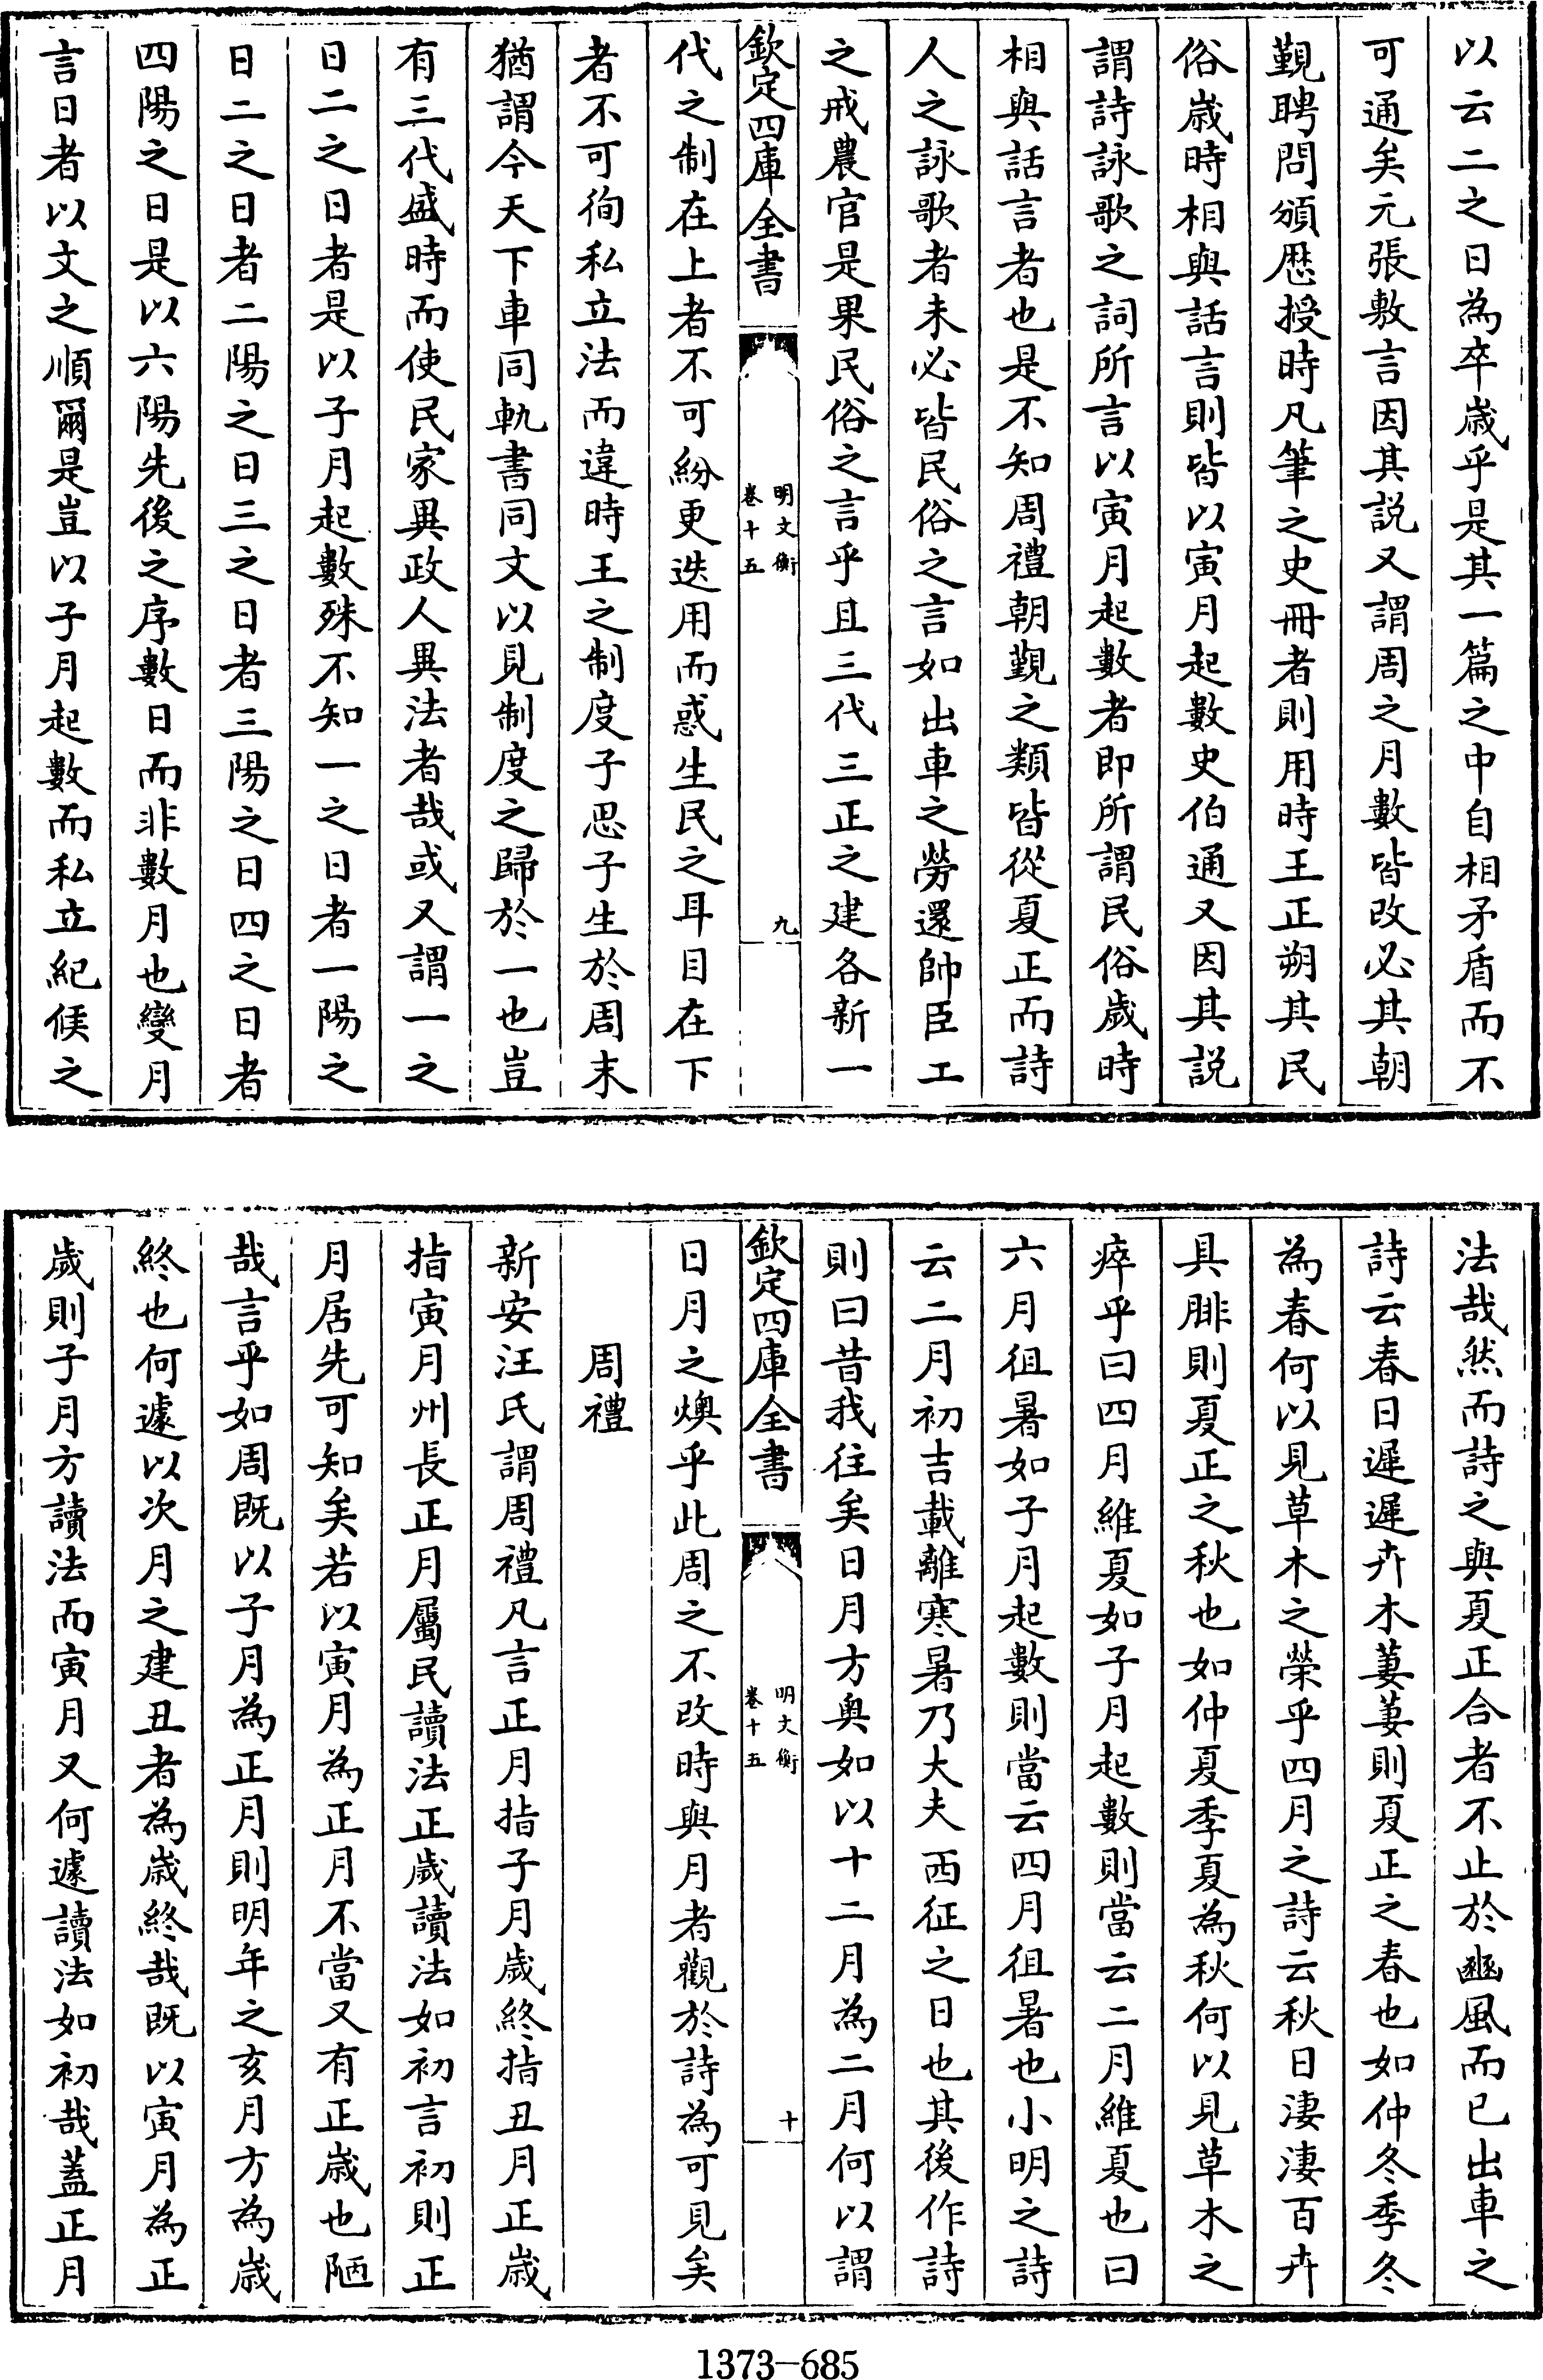 以云二之日為卒歳乎是其一篇之中自相矛盾而不
可通矣元張敷言因其説又謂周之月數皆改必其朝
覲聘問頒厯授時凡筆之史冊者則用時王正朔其民
俗歳時相與話言則皆以寅月起數史伯通又因其説
謂詩詠歌之詞所言以寅月起數者即所謂民俗歲時
相與話言者也是不知周禮朝覲之類皆從夏正而詩
人之詠歌者未必皆民俗之言如出車之勞還帥臣工
之戒農官是果民俗之言乎且三代三正之建各新一
欽定四庫全書
明文衡
卷十五
九
代之制在上者不可紛更迭用而惑生民之耳目在下
者不可徇私立法而違時王之制度子思子生於周末
猶謂今天下車同軌書同文以見制度之歸於一也豈
有三代盛時而使民家異政人異法者哉或又謂一之
日二之日者是以子月起數殊不知一之日者一陽之
日二之日者二陽之日三之日者三陽之日四之日者
四陽之日是以六陽先後之序數日而非數月也變月
言日者以文之順爾是豈以子月起數而私立紀候之
法哉然而詩之與夏正合者不止於豳風而已出車之
詩云春日遲遲卉木萋萋則夏正之春也如仲冬季冬
為春何以見草木之榮乎四月之詩云秋日淒淒百卉
具腓則夏正之秋也如仲夏季夏為秋何以見草木之
瘁乎曰四月維夏如子月起數則當云二月維夏也曰
六月徂暑如子月起數則當云四月徂暑也小明之詩
云二月初吉載離寒暑乃大夫西征之日也其後作詩
則曰昔我往矣日月方奥如以十二月為二月何以謂
欽定四庫全書
明文衡
卷十五
十
日月之燠乎此周之不改時與月者觀於詩為可見矣
周禮
新安汪氏謂周禮凡言正月指子月歲終指丑月正歳
指寅月州長正月屬民讀法正歲讀法如初言初則正
月居先可知矣若以寅月為正月不當又有正歳也陋
哉言乎如周既以子月為正月則明年之亥月方為歳
終也何遽以次月之建丑者為歳終哉既以寅月為正
歲則子月方讀法而寅月又何遽讀法如初哉蓋正月
1373-685